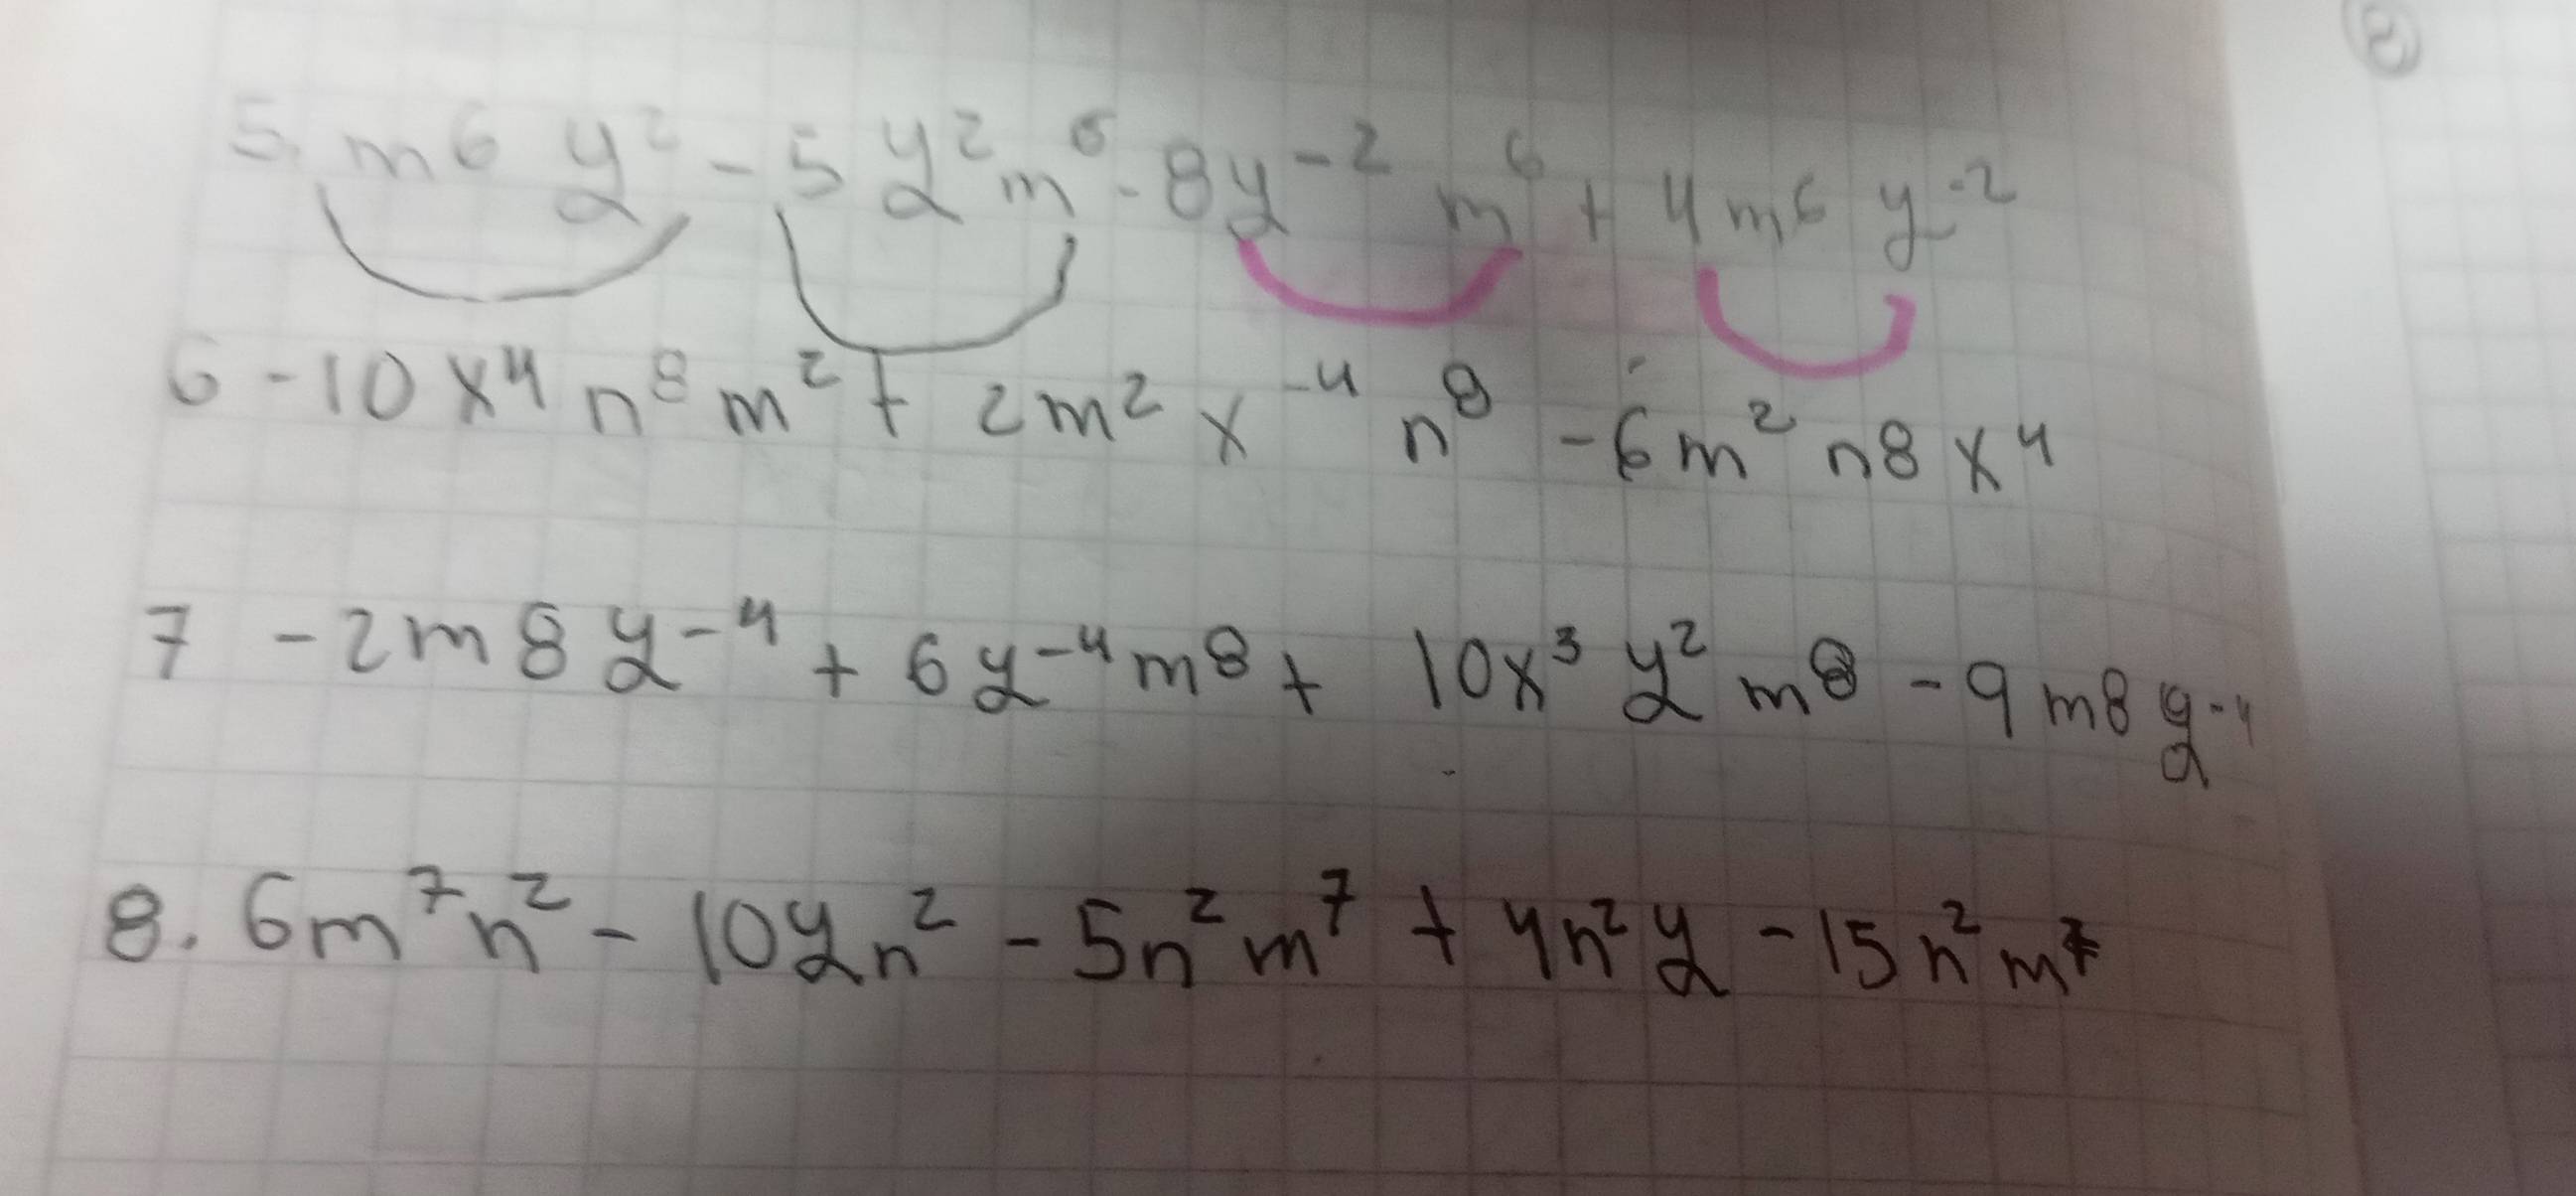 5. m⁶ y² - 5 y² m⁶ - 8y⁻² m⁶ + 4m⁶ y⁻²
6 -10 x⁴ n⁸ m² + 2m² x⁻⁴ n⁸ - 6m² n8 x⁴
7 -2m8y⁻⁴ + 6y⁻⁴m8 + 10x³ y² m8 - 9m8y⁻⁴
8. 6m⁷n² - 10yn² - 5n²m⁷ + 4n²y - 15n²m⁷